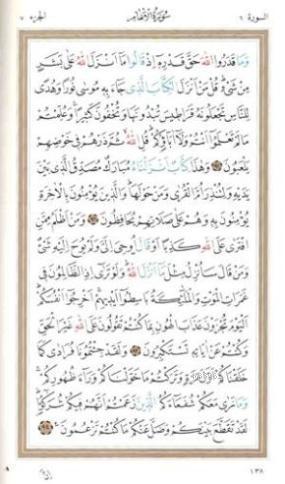 السورة ٦ سُورَةُ الأَنْعَام الجزء ٧
وَمَا قَدَرُوا اللهَ حَقَّ قَدْرِهِ إِذْ قَالُوا مَا أَنْزَلَ اللهُ عَلَى بَشَرٍ
مِنْ شَيْءٍ قُلْ مَنْ أَنْزَلَ الْكِتَابَ الَّذِي جَاءَ بِهِ مُوسَى نُورًا وَهُدًى
لِلنَّاسِ تَجْعَلُونَهُ قَرَاطِيسَ تُبْدُونَهَا وَتُخْفُونَ كَثِيرًا وَعُلِّمْتُمْ
مَا لَمْ تَعْلَمُوا أَنْتُمْ وَلَا آبَاؤُكُمْ قُلِ اللهُ ثُمَّ ذَرْهُمْ فِي خَوْضِهِمْ
يَلْعَبُونَ وَهَذَا كِتَابٌ أَنْزَلْنَاهُ مُبَارَكٌ مُصَدِّقُ الَّذِي بَيْنَ
يَدَيْهِ وَلِتُنْذِرَ أُمَّ الْقُرَى وَمَنْ حَوْلَهَا وَالَّذِينَ يُؤْمِنُونَ بِالْآخِرَةِ
يُؤْمِنُونَ بِهِ وَهُمْ عَلَى صَلَاتِهِمْ يُحَافِظُونَ وَمَنْ أَظْلَمُ مِمَّنِ
افْتَرَى عَلَى اللهِ كَذِبًا أَوْ قَالَ أُوحِيَ إِلَيَّ وَلَمْ يُوحَ إِلَيْهِ شَيْءٌ
وَمَنْ قَالَ سَأُنْزِلُ مِثْلَ مَا أَنْزَلَ اللهُ وَلَوْ تَرَى إِذِ الظَّالِمُونَ فِي
غَمَرَاتِ الْمَوْتِ وَالْمَلَائِكَةُ بَاسِطُوا أَيْدِيهِمْ أَخْرِجُوا أَنْفُسَكُمُ
الْيَوْمَ تُجْزَوْنَ عَذَابَ الْهُونِ بِمَا كُنْتُمْ تَقُولُونَ عَلَى اللهِ غَيْرَ الْحَقِّ
وَكُنْتُمْ عَنْ آيَاتِهِ تَسْتَكْبِرُونَ وَلَقَدْ جِئْتُمُونَا فُرَادَى كَمَا
خَلَقْنَاكُمْ أَوَّلَ مَرَّةٍ وَتَرَكْتُمْ مَا خَوَّلْنَاكُمْ وَرَاءَ ظُهُورِكُمْ
وَمَا نَرَى مَعَكُمْ شُفَعَاءَكُمُ الَّذِينَ زَعَمْتُمْ أَنَّهُمْ فِيكُمْ شُرَكَاءُ
لَقَدْ تَقَطَّعَ بَيْنَكُمْ وَضَلَّ عَنْكُمْ مَا كُنْتُمْ تَزْعُمُونَ
١٣٨